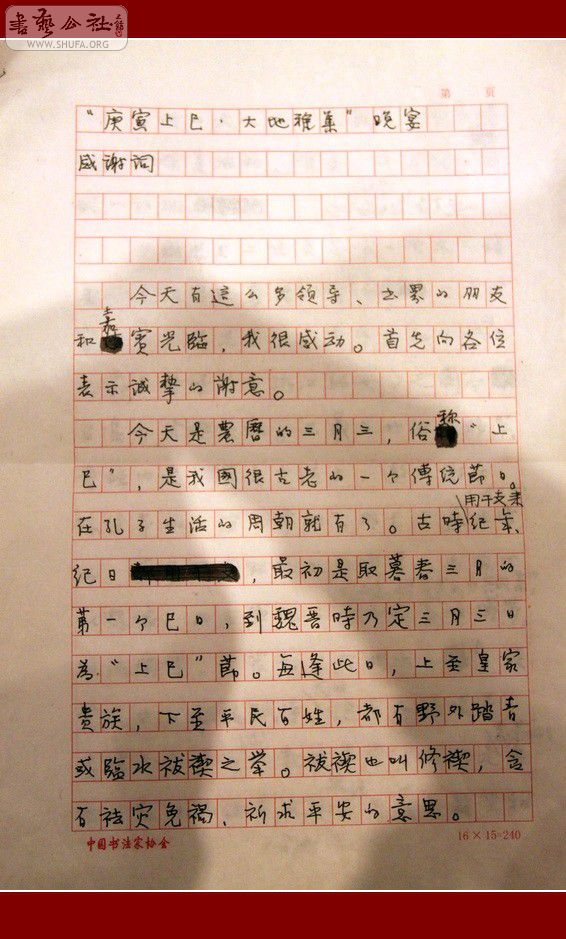 書藝公社
WWW.SHUFA.ORG
第 页
“庚寅上巳·大地雅集”晚宴
感谢词
今天有這么多领导、书界的朋友
和嘉賓光臨，我很感动。首先向各位
表示诚挚的谢意。
今天是農曆的三月三，俗称“上
巳”，是我國很古老的一个傳統節日。
在孔子生活的周朝就有了。古時用干支来紀年、
纪日，最初是取暮春三月的
第一个巳日，到魏晋時乃定三月三日
為“上巳”節。每逢此日，上至皇家
贵族，下至平民百姓，都有野外踏青
或臨水祓禊之举。祓禊也叫修禊，含
有祛灾免禍、祈求平安的意思。
中国书法家协会
16×15=240